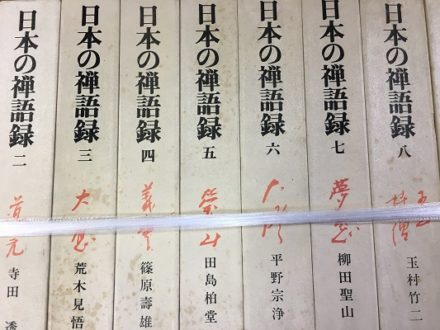 日本の禅語録 二
道元
寺田 透
日本の禅語録 三
荒木見悟
日本の禅語録 四
篠原壽雄
日本の禅語録 五
瑩山
田島柏堂
日本の禅語録 六
平野宗浄
日本の禅語録 七
柳田聖山
日本の禅語録 八
玉村竹二